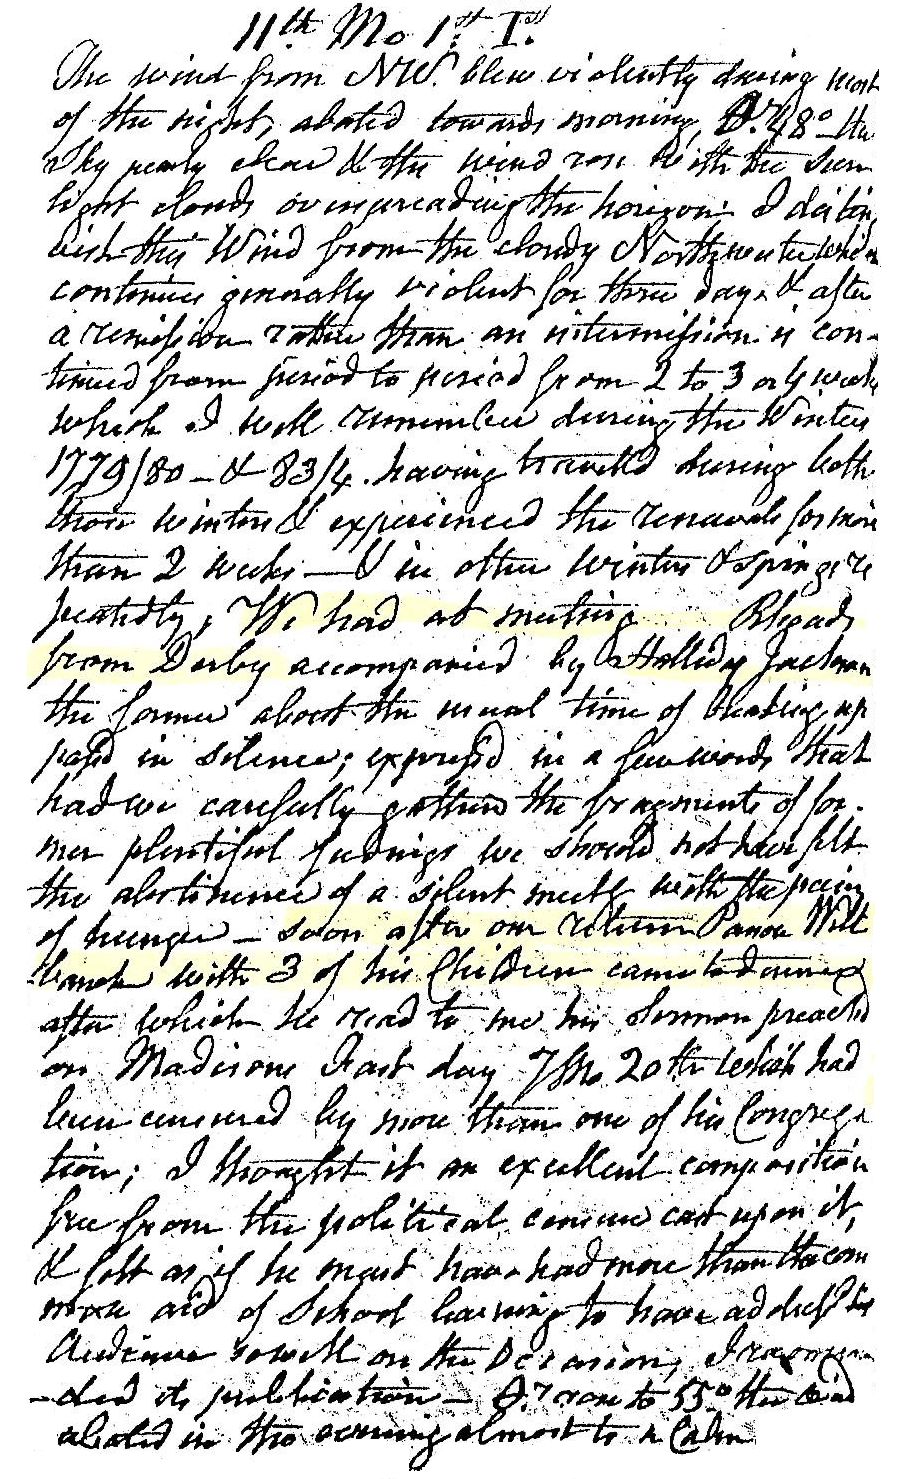 11th Mo 1st I.st
The wind from NW. blew violently during most
of the night, abated towards morning, 48° the
Sky nearly clear & the wind rose with the sun
light clouds overspreading the horizon I distin
uish this Wind from the cloudy Northwester which
continues generally violent for three days & after
a remission rather than an intermission is con-
tinued from period to period from 2 to 3 or 4 weeks
which I well remember during the Winters
1779/80 - & 83/4. having travelled during both
those winters & experienced the renewals for more
than 2 weeks — & in other winters & springs re
peatedly; We had at meeting Rhoads
from Derby accompanied by Holliday Jackson
the former about the usual time of breaking up
passd in silence; expressd in a few words that
had we carefully gatherd the fragments of for-
mer plentiful feedings we should not have felt
the abstinence of a silent meetg with the pain
of hunger - soon after our return Parson Wilt
bank with 3 of his Children came to dinner
after which he read to me his Sermon preachd
on Madisons Fast day 7 Mo 20th which had
been censured by more than one of his Congrega
tion; I thought it an excellent composition
free from the political censure cast upon it,
& felt as if he must have had more than the com
mon aid of School learning to have addresst his
Audience so well on the Occasion, I recommen
-ded its publication - rose to 55° the wind
abated in the evening almost to a Calm